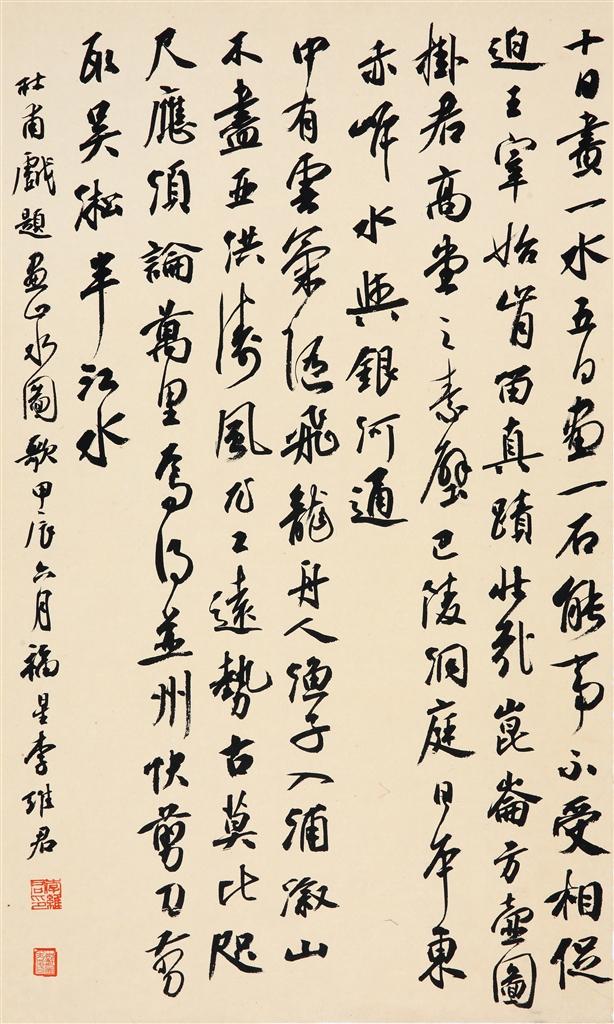 十日畫一水五日畫一石能事不受相促
迫王宰始肯留真蹟壯哉崑崙方壺圖
掛君高堂之素壁巴陵洞庭日本東
赤岸水與銀河通
中有雲氣隨飛龍舟人漁子入浦漵山
木盡亞洪濤風尤工遠勢古莫比咫
尺應須論萬里焉得並州快剪刀剪
取吳淞半江水
杜甫戲題畫山水圖歌甲辰六月福星李維君
李維君印